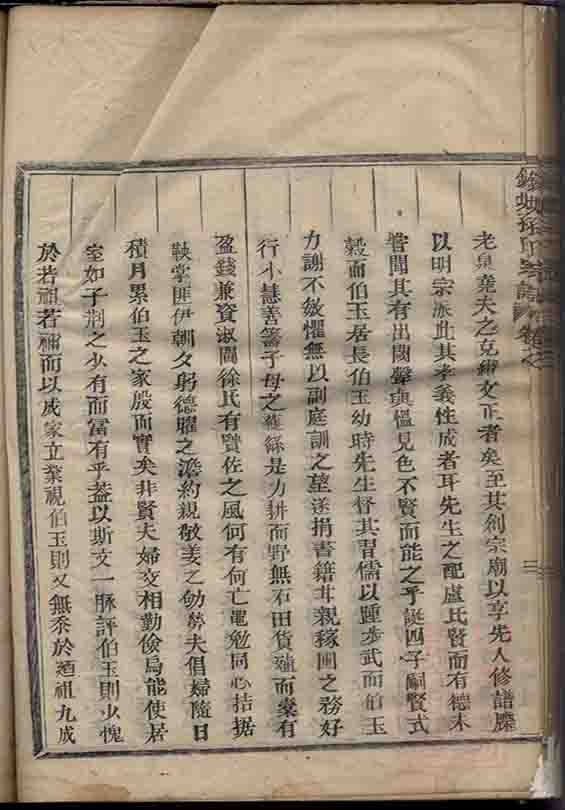 老泉堯夫之克繼文正者矣至其創宗廟以享先人修譜牒
以明宗派此其孝義性成者耳先生之配盧氏賢而有德未
嘗聞其有出閫聲與慍見色不賢而能之乎誕四子嗣賢式
穀而伯玉居長伯玉幼時先生督其習儒以踵步武而伯玉
力謝不敏懼無以副庭訓之望遂捐書籍廿親稼圃之務好
行小慧善籌子母之 餘是力耕而野無石田貨殖而橐有
盈錢兼資淑閫徐氏有賢佐之風何有何亡黽勉同心拮据
鞅掌匪伊朝夕躬德曜之澹約親敬姜之劬勞夫倡婦隨日
積月累伯玉之家殷而實矣非賢夫婦交相勤儉烏能使居
室如子荆之少有而富有乎葢以斯文一脉評伯玉則少愧
於若祖若禰而以成家立業視伯玉則又無忝於廼祖九成
氏宗譜 卷之
三